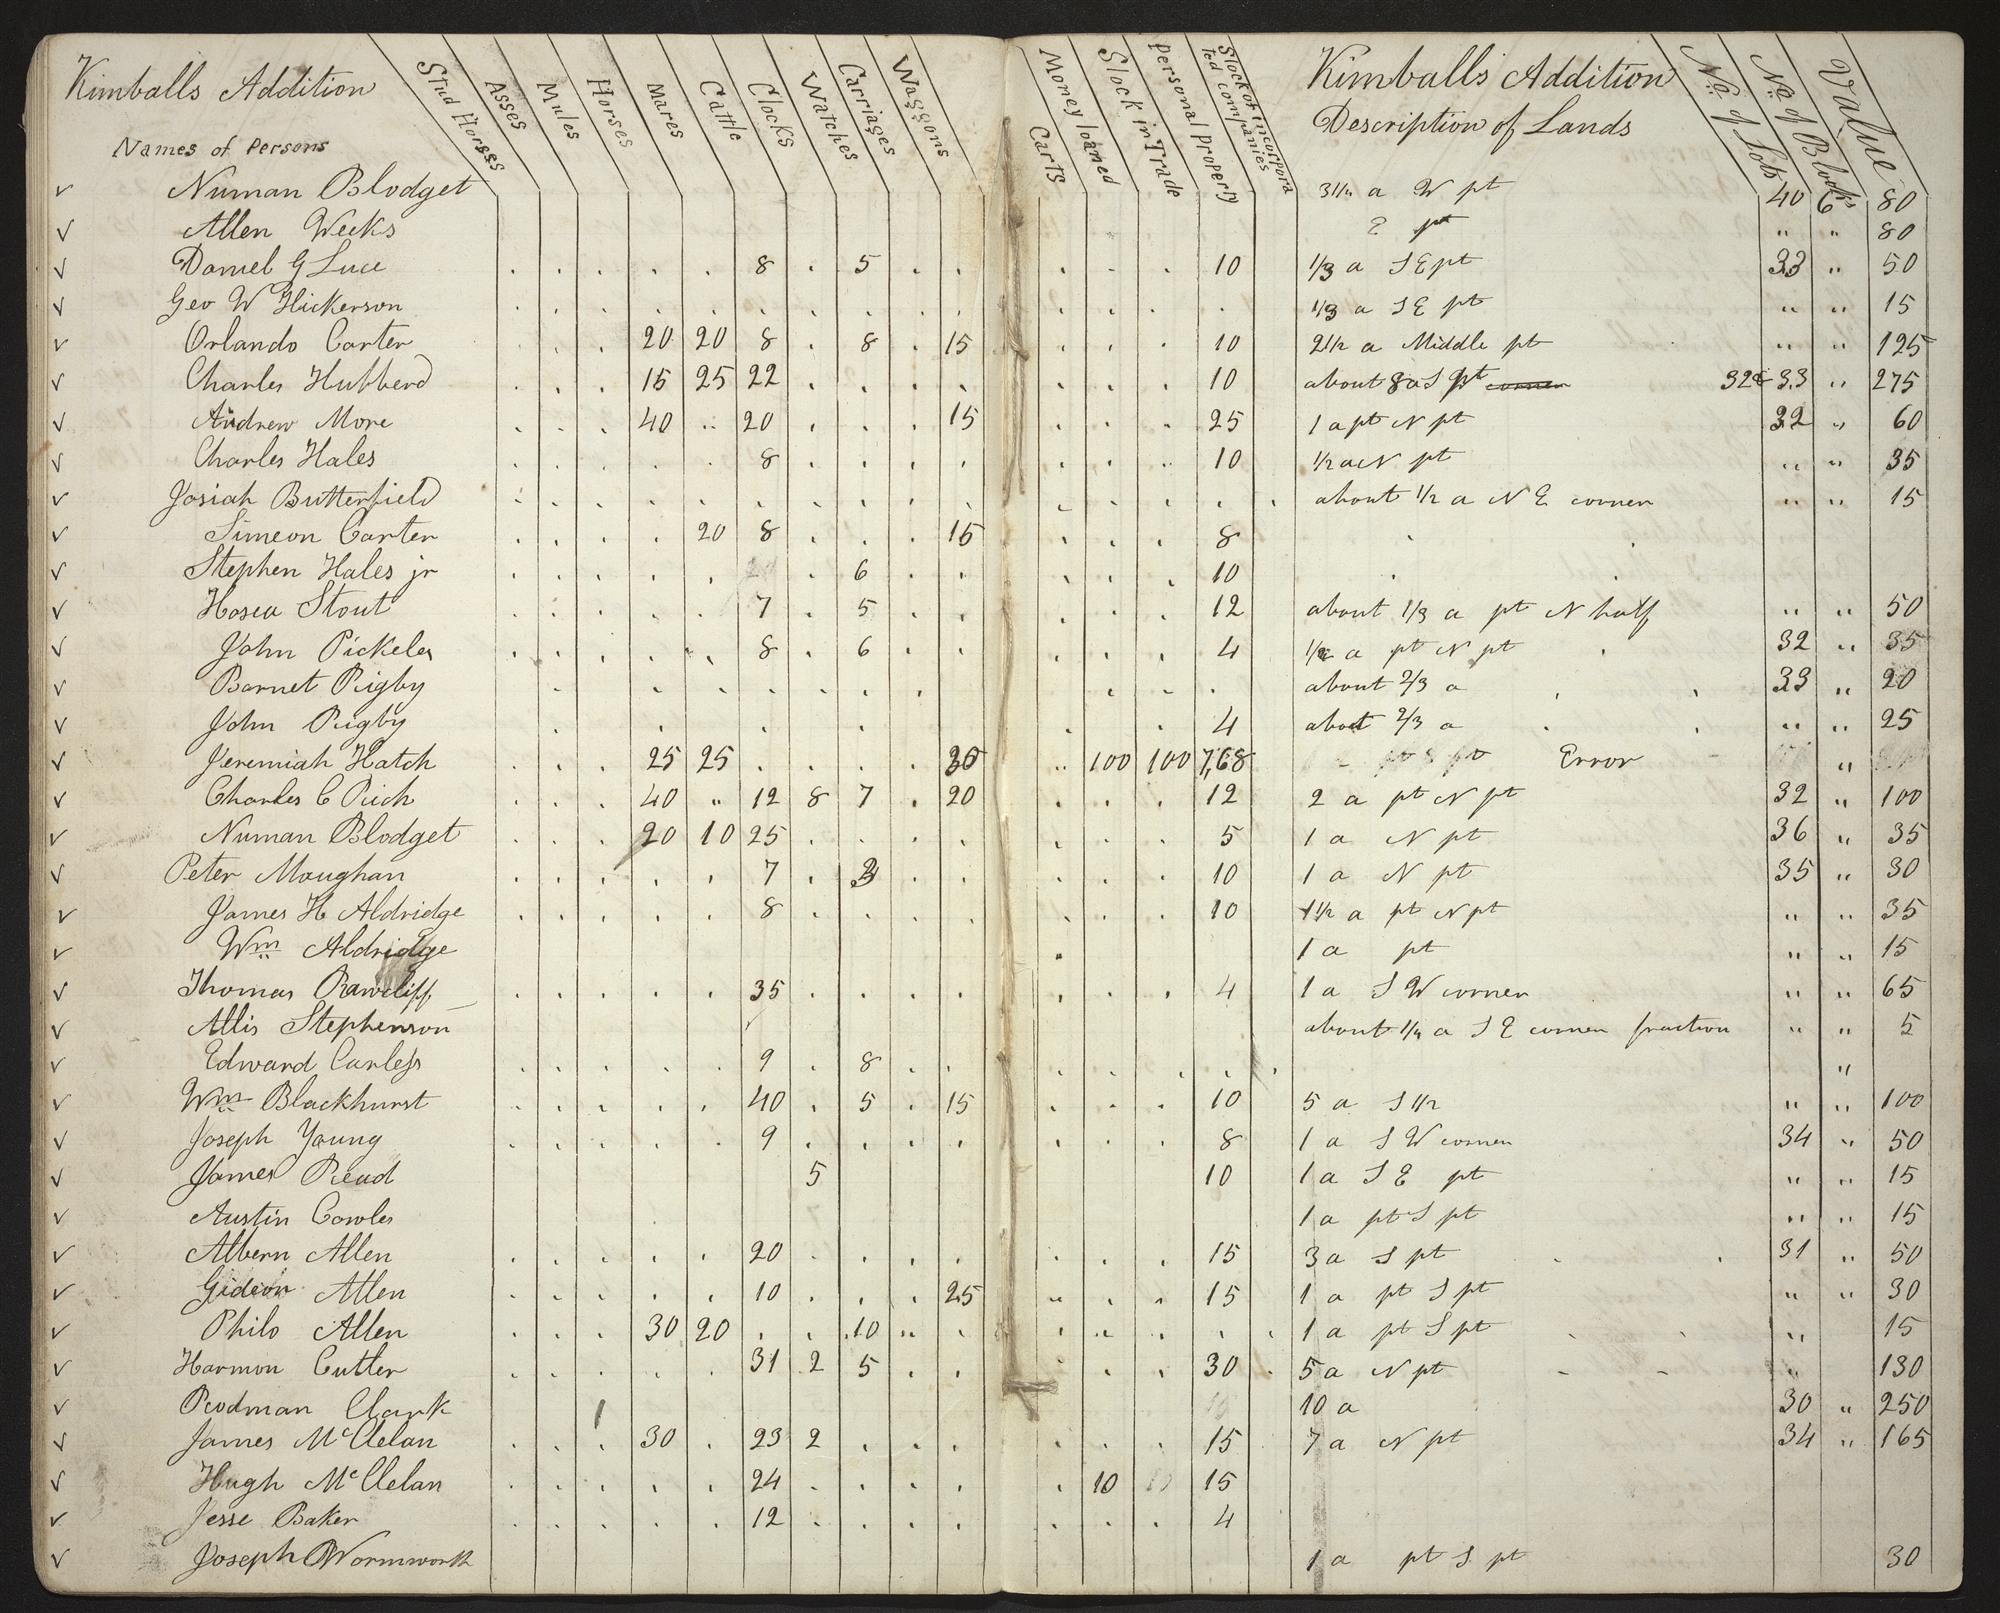 Kimballs Addition
Names of Persons
Stud Horses Asses Mules Horses Mares Cattle Clocks Watches Carriages Waggons
Carts Money loaned Stock in Trade Personal Property Stock of incorporated companies
Kimballs Addition
Description of Lands
No. of Lots No. of Blocks Value
Numan Blodget 3 1/2 a W pt 40 6 80
Allen Weeks E pt " " 80
Daniel G Luce 8 5 10 1/3 a S E pt 33 " 50
Geo W Hickerson 1/3 a S E pt " " 15
Orlando Carter 20 20 8 8 15 10 2 1/2 a Middle pt " " 125
Charles Hubberd 15 25 22 10 about 8 a S pt corner 32 & 33 " 275
Andrew More 40 " 20 15 25 1 a pt N pt 32 " 60
Charles Hales 8 10 1/2 a N pt " " 35
Josiah Butterfield about 1/2 a N E corner " " 15
Simeon Carter 20 8 15 8
Stephen Hales jr 6 10
Hosea Stout 7 5 12 about 1/3 a pt N half " " 50
John Pickeles 8 6 4 1/2 a pt N pt 32 " 35
Barnet Rigby about 2/3 a 33 " 20
John Rigby 4 about 2/3 a " " 25
Jeremiah Hatch 25 25 30 " 100 100 7,68 pt S pt Error "
Charles C Rich 40 " 12 8 7 20 12 2 a pt N pt 32 " 100
Numan Blodget 20 10 25 5 1 a N pt 36 " 35
Peter Maughan 7 10 1 a N pt 35 " 30
James H Aldridge 8 10 1 1/2 a pt N pt " " 35
Wm Aldridge 1 a pt " " 15
Thomas Rawcliff 35 4 1 a S W corner " " 65
Allis Stephenson about 1/4 a S E corner fraction " " 5
Edward Carless 9 8 "
Wm Blackhurst 40 5 15 10 5 a S 1/2 " " 100
Joseph Young 9 8 1 a S W corner 34 " 50
James Read 5 10 1 a S E pt " " 15
Austin Cowles 1 a pt S pt " " 15
Albern Allen 20 15 3 a S pt 31 " 50
Gideon Allen 10 25 " 15 1 a pt S pt " " 30
Philo Allen 30 20 10 " " 1 a pt S pt " 15
Harmon Cutler 31 2 5 30 5 a N pt " 130
Rodman Clark 1 10 a 30 " 250
James McClelan 30 23 2 15 7 a N pt 34 " 165
Hugh McClelan 24 10 15
Jesse Baker 12 4
Joseph Wormworth 1 a pt S pt 30